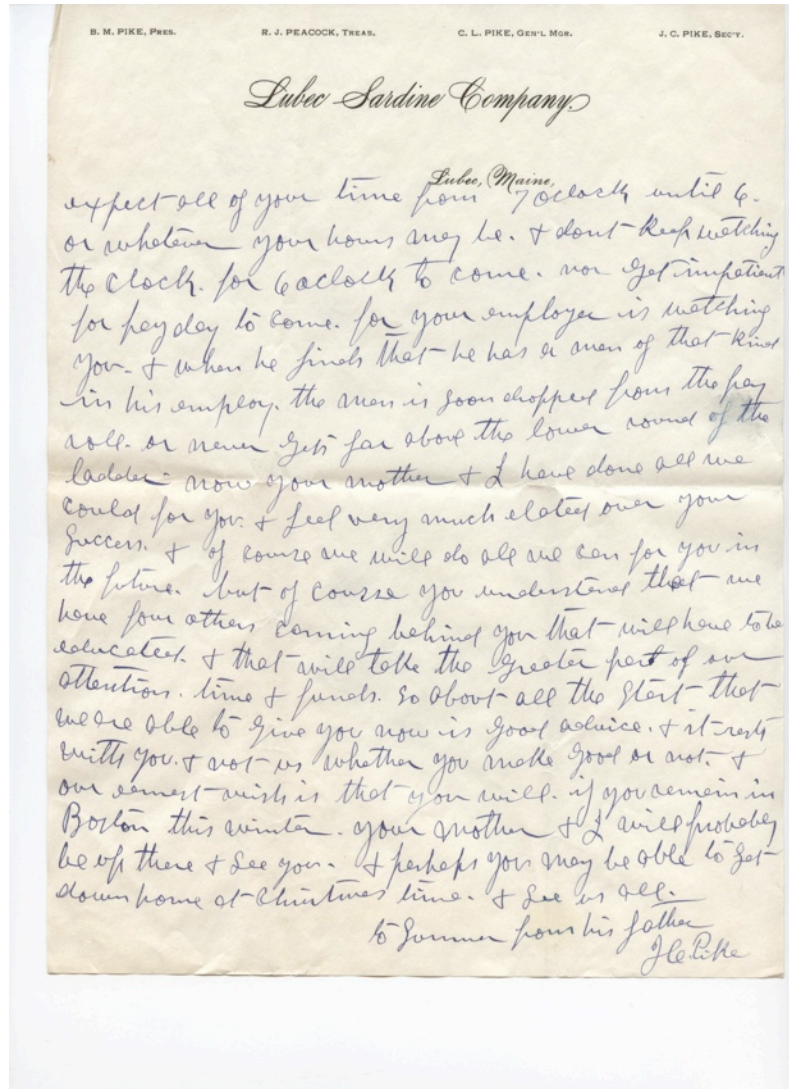 B. M. PIKE, PRES. R. J. PEACOCK, TREAS. C. L. PIKE, GEN'L MGR. J. C. PIKE, SEC'Y.
Lubec Sardine Company.
Lubec, Maine,
expect all of your time from 7 oclock until 6.
or whatever your hours may be. & dont keep watching
the clock. for 6 oclock to come. nor get impatient
for pay day to come. for your employer is watching
you. & when he finds that he has a man of that kind
in his employ. the man is soon dropped from the pay
roll. or never gets far above the lower round of the
ladder. now your mother & I have done all we
could for you. & feel very much elated over your
success. & of course we will do all we can for you in
the future. but of course you understand that we
have four others coming behind you that will have to be
educated. & that will take the greater part of our
attention. time & funds. so about all the start that
we are able to give you now is good advice. & it rests
with you. & not us whether you make good or not. &
our earnest wish is that you will. if you remain in
Boston this winter. your mother & I will probably
be up there & see you. & perhaps you may be able to get
down home at Christmas time. & see us all.
to Sumner from his father
J C. Pike